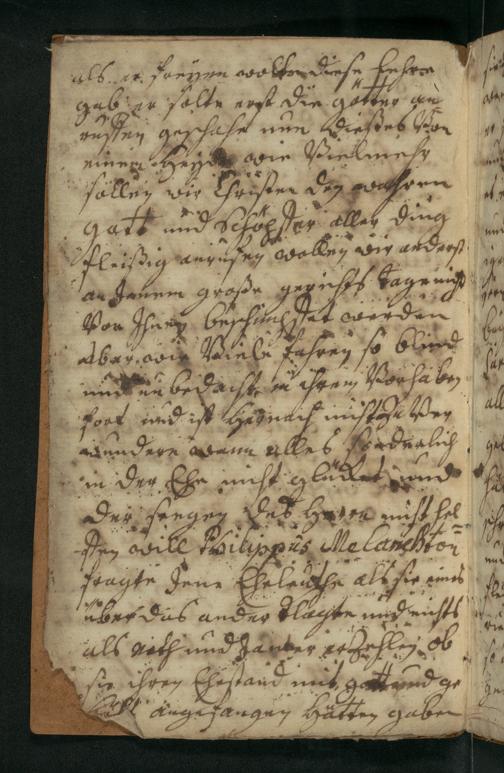 als er freyen wolte diese Lehre
gab er solte erst die götter an
ruffen geschahe nun dießes Von
einem Heyden wie Vielmehr
sollen wir Christen den wahren
gott und Schöpffer aller ding
fleißig anruffen wollen wir anderst
an Jenem große gerichts tage nicht
Von Ihnen beschimpffet werden
Aber wie Viele fahren so blind
und unbedacht in ihrem Vorhaben
fort und ist hernach nicht zu Ver
wundern wann alles sonderlich
in der Ehe nicht glücket und
der seegen des Herrn nicht hel
ffen will Philippus Melanchton
fragte Jene Eheleuthe als sie eines
über das ander klagte und nichts
als noth und Jamer erzehlen ob
sie ihren Ehestand mit gott und ge
angefangen hätten gaben